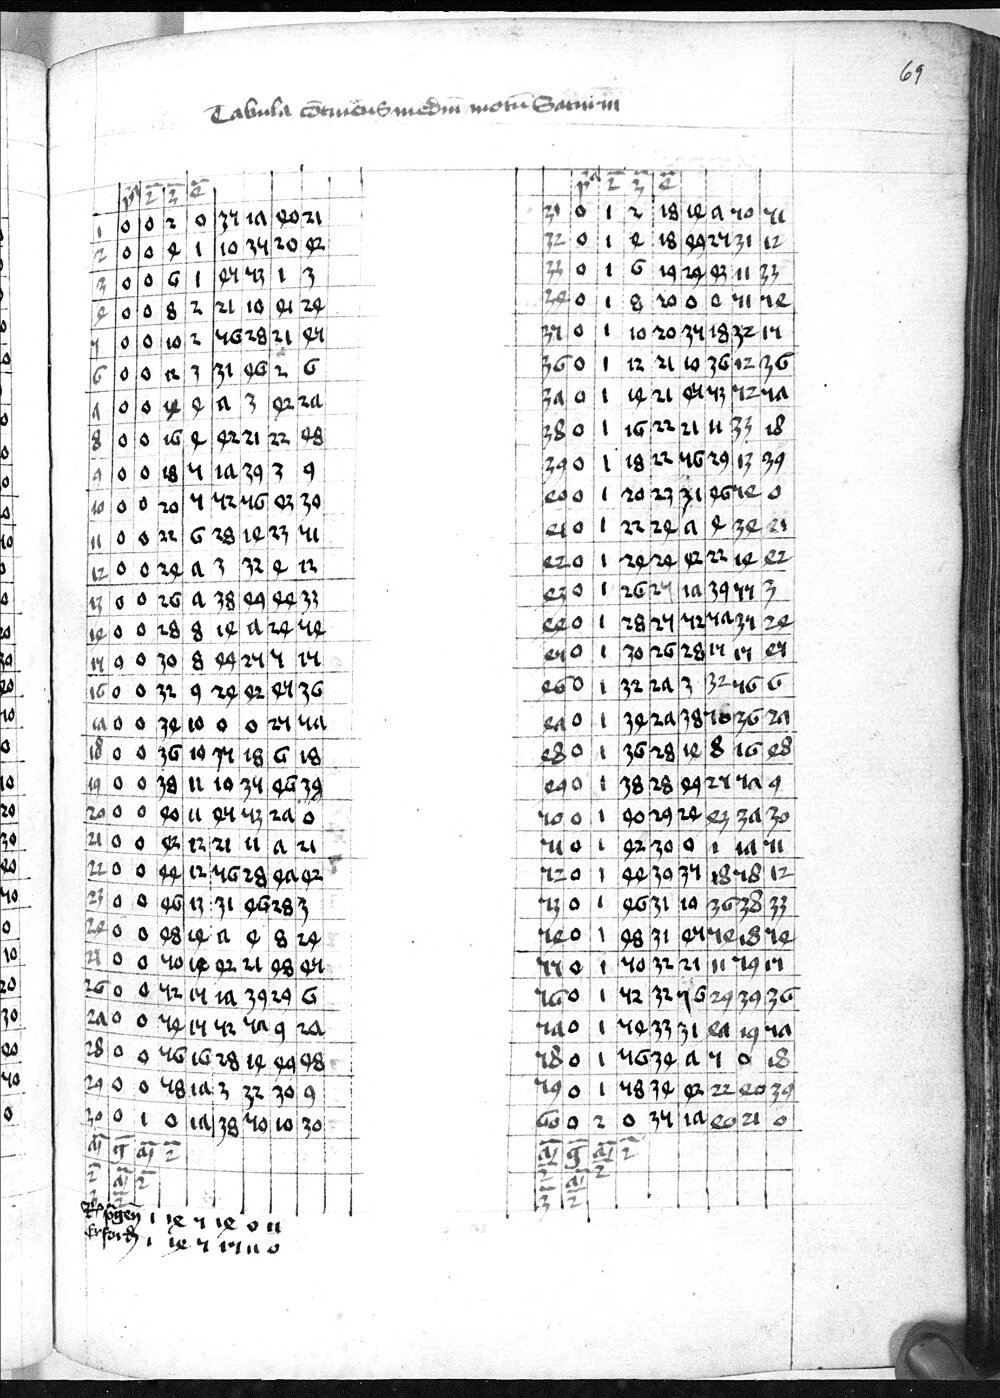 69
Tabula cōtinēs mediū motū Saturni
1 0 0 2 0 35 17 40 21
2 0 0 4 1 10 35 20 42
3 0 0 6 1 45 53 1 3
4 0 0 8 2 21 10 41 24
5 0 0 10 2 56 28 21 45
6 0 0 12 3 31 46 2 6
7 0 0 14 4 7 3 42 27
8 0 0 16 4 42 21 22 48
9 0 0 18 5 17 39 3 9
10 0 0 20 5 52 56 43 30
11 0 0 22 6 28 14 23 51
12 0 0 24 7 3 32 4 12
13 0 0 26 7 38 49 44 33
14 0 0 28 8 14 7 24 54
15 0 0 30 8 49 25 5 15
16 0 0 32 9 24 42 45 36
17 0 0 34 10 0 0 25 57
18 0 0 36 10 35 18 6 18
19 0 0 38 11 10 35 46 39
20 0 0 40 11 45 53 27 0
21 0 0 42 12 21 11 7 21
22 0 0 44 12 56 28 47 42
23 0 0 46 13 31 46 28 3
24 0 0 48 14 7 4 8 24
25 0 0 50 14 42 21 48 45
26 0 0 52 15 17 39 29 6
27 0 0 54 15 52 57 9 27
28 0 0 56 16 28 14 49 48
29 0 0 58 17 3 32 30 9
30 0 1 0 17 38 50 10 30
31 0 1 2 18 14 7 50 51
32 0 1 4 18 49 25 31 12
33 0 1 6 19 24 43 11 33
34 0 1 8 20 0 0 51 54
35 0 1 10 20 35 18 32 15
36 0 1 12 21 10 36 12 36
37 0 1 14 21 45 53 52 57
38 0 1 16 22 21 11 33 18
39 0 1 18 22 56 29 13 39
40 0 1 20 23 31 46 54 0
41 0 1 22 24 7 4 34 21
42 0 1 24 24 42 22 14 42
43 0 1 26 25 17 39 55 3
44 0 1 28 25 52 57 35 24
45 0 1 30 26 28 15 15 45
46 0 1 32 27 3 32 56 6
47 0 1 34 27 38 50 36 27
48 0 1 36 28 14 8 16 48
49 0 1 38 28 49 25 57 9
50 0 1 40 29 24 43 37 30
51 0 1 42 30 0 1 17 51
52 0 1 44 30 35 18 58 12
53 0 1 46 31 10 36 38 33
54 0 1 48 31 45 54 18 54
55 0 1 50 32 21 11 59 15
56 0 1 52 32 56 29 39 36
57 0 1 54 33 31 47 19 57
58 0 1 56 34 7 5 0 18
59 0 1 58 34 42 22 40 39
60 0 2 0 35 17 40 21 0
1 14 5 14 0 11
Erfordie 1 14 5 15 11 0